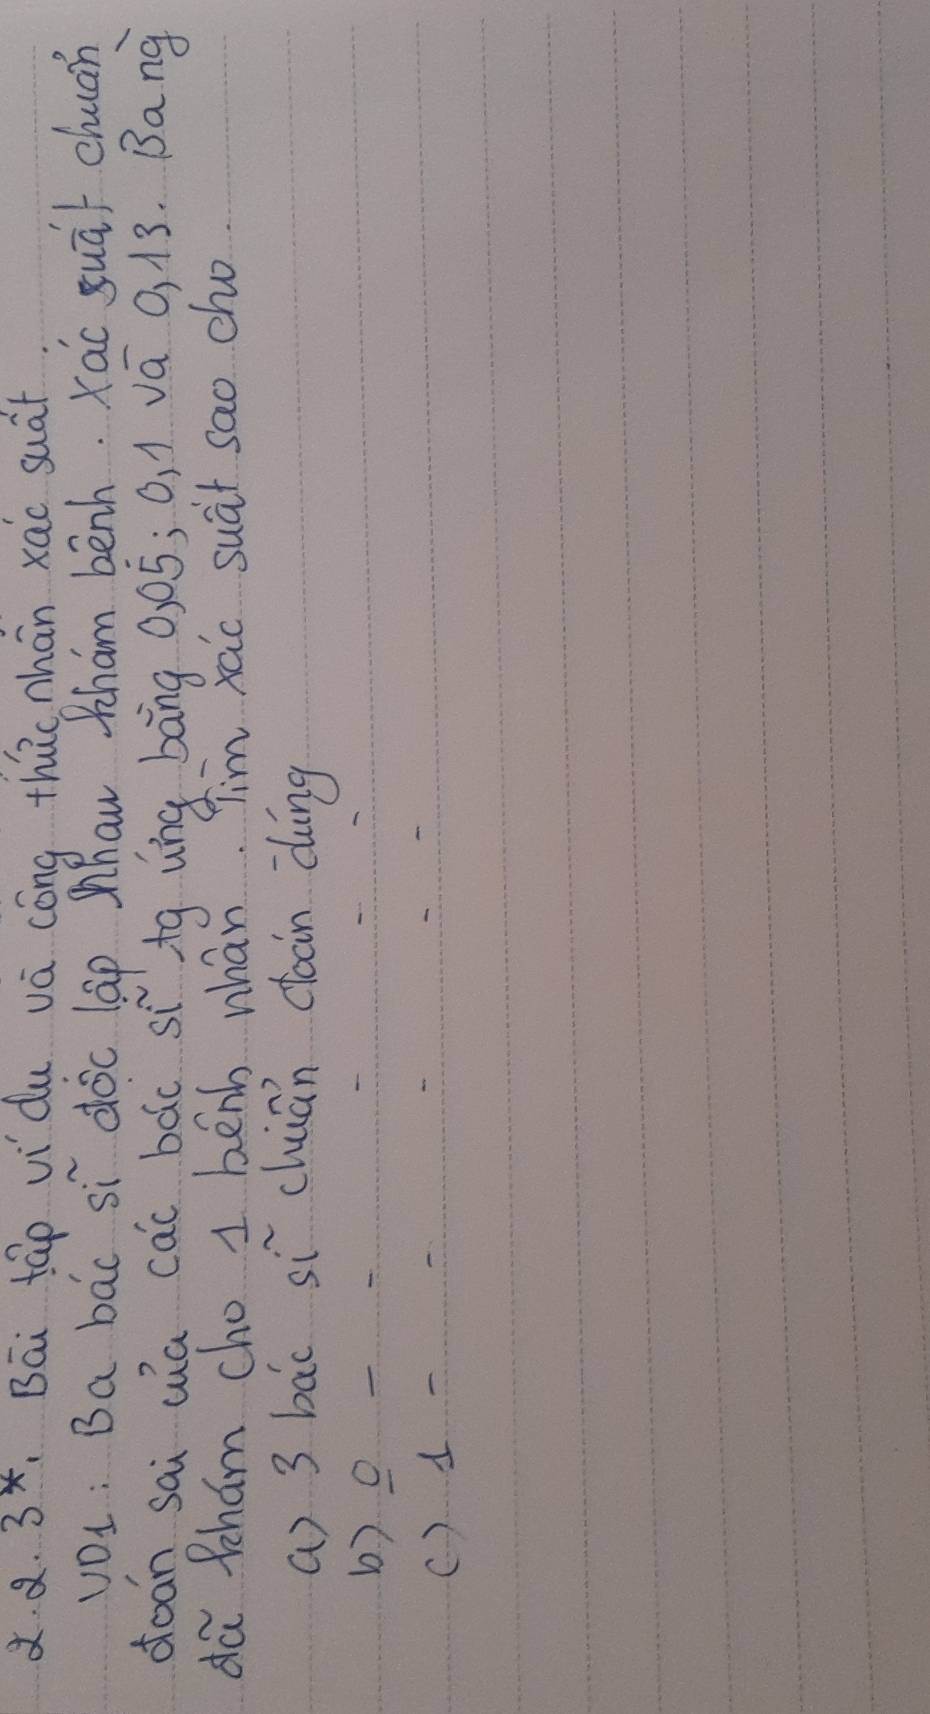 2.2.3*. Bài tập ví dụ và công thức nhân xác suất
VD1: Ba bác sĩ độc lập nhau khám bệnh. Xác suất chuẩn
đoán sai của các bác sĩ tg ứng bằng 0,05; 0,1 và 0,13. Ba ng
đã khám cho 1 bệnh nhân. Tìm xác suất sao cho
a) 3 bác sĩ chuẩn đoán đúng
b) 0 - - - - -
c) 1 - - - - -